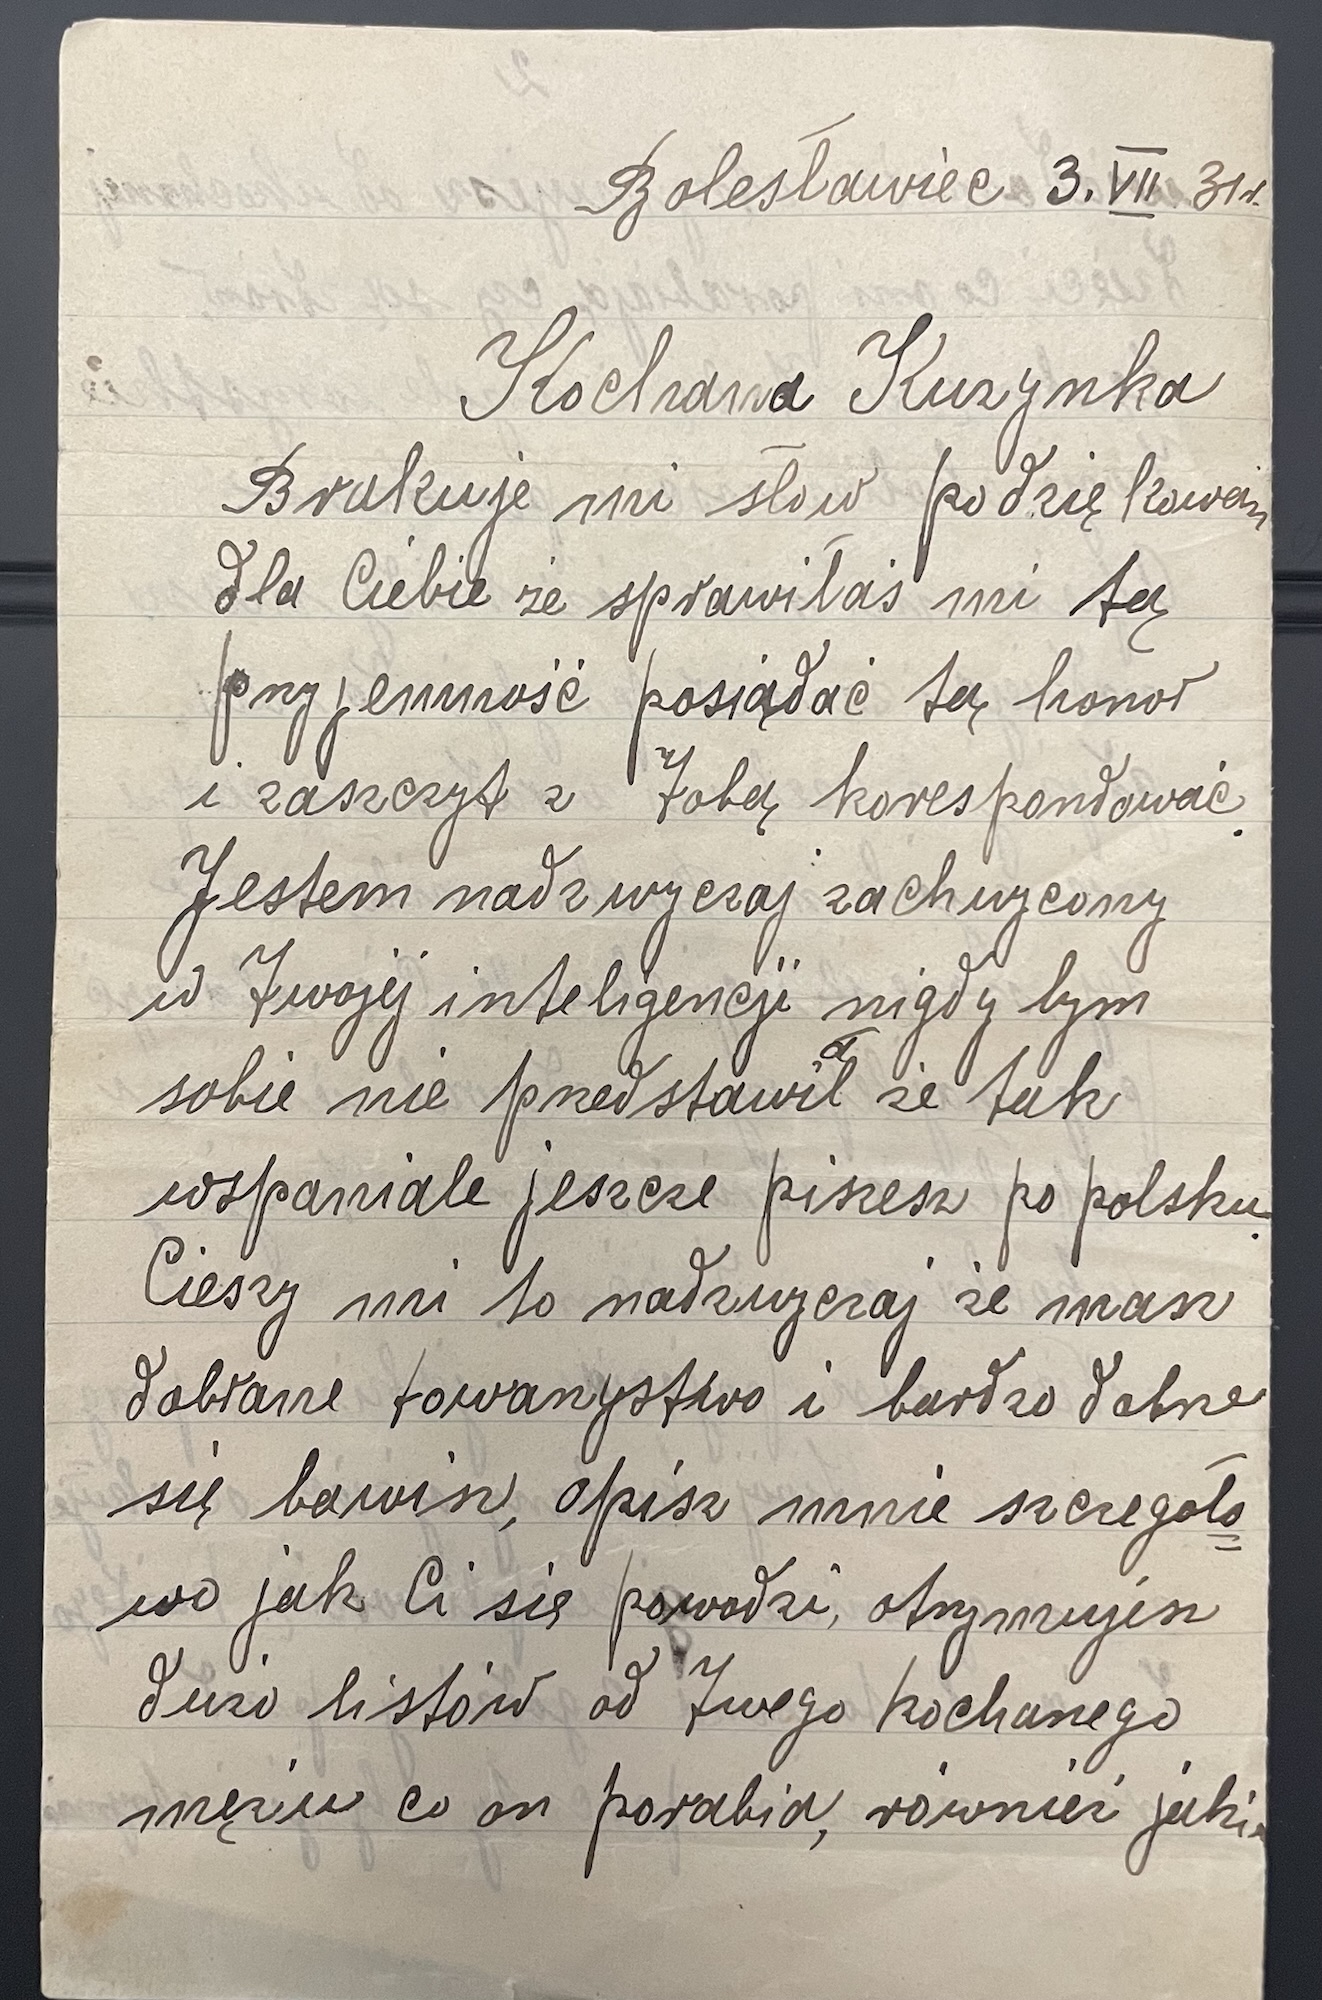 Bolesławiec 3. VII 31 r.
Kochana Kuzynka
Brakuje mi słow podziękowań
dla Ciebie że sprawiłaś mi tą
przyjemność posiądać tą honor
i zaszczyt z Tobą korespondować.
Jestem nadzwyczaj zachwycony
w Twojéj inteligencji nigdy bym
sobie nie przedstawił a że tak
wspaniale jeszcze piszesz po polsku.
Cieszy mi to nadzwyczaj że masz
dobrane towarzystwo i bardzo dobrze
się bawisz, opisz mnie szczegóło
wo jak Ci się powodzi, otrzymujesz
dużo listów od Twego kochanego
mężu co on porabia, również jakie